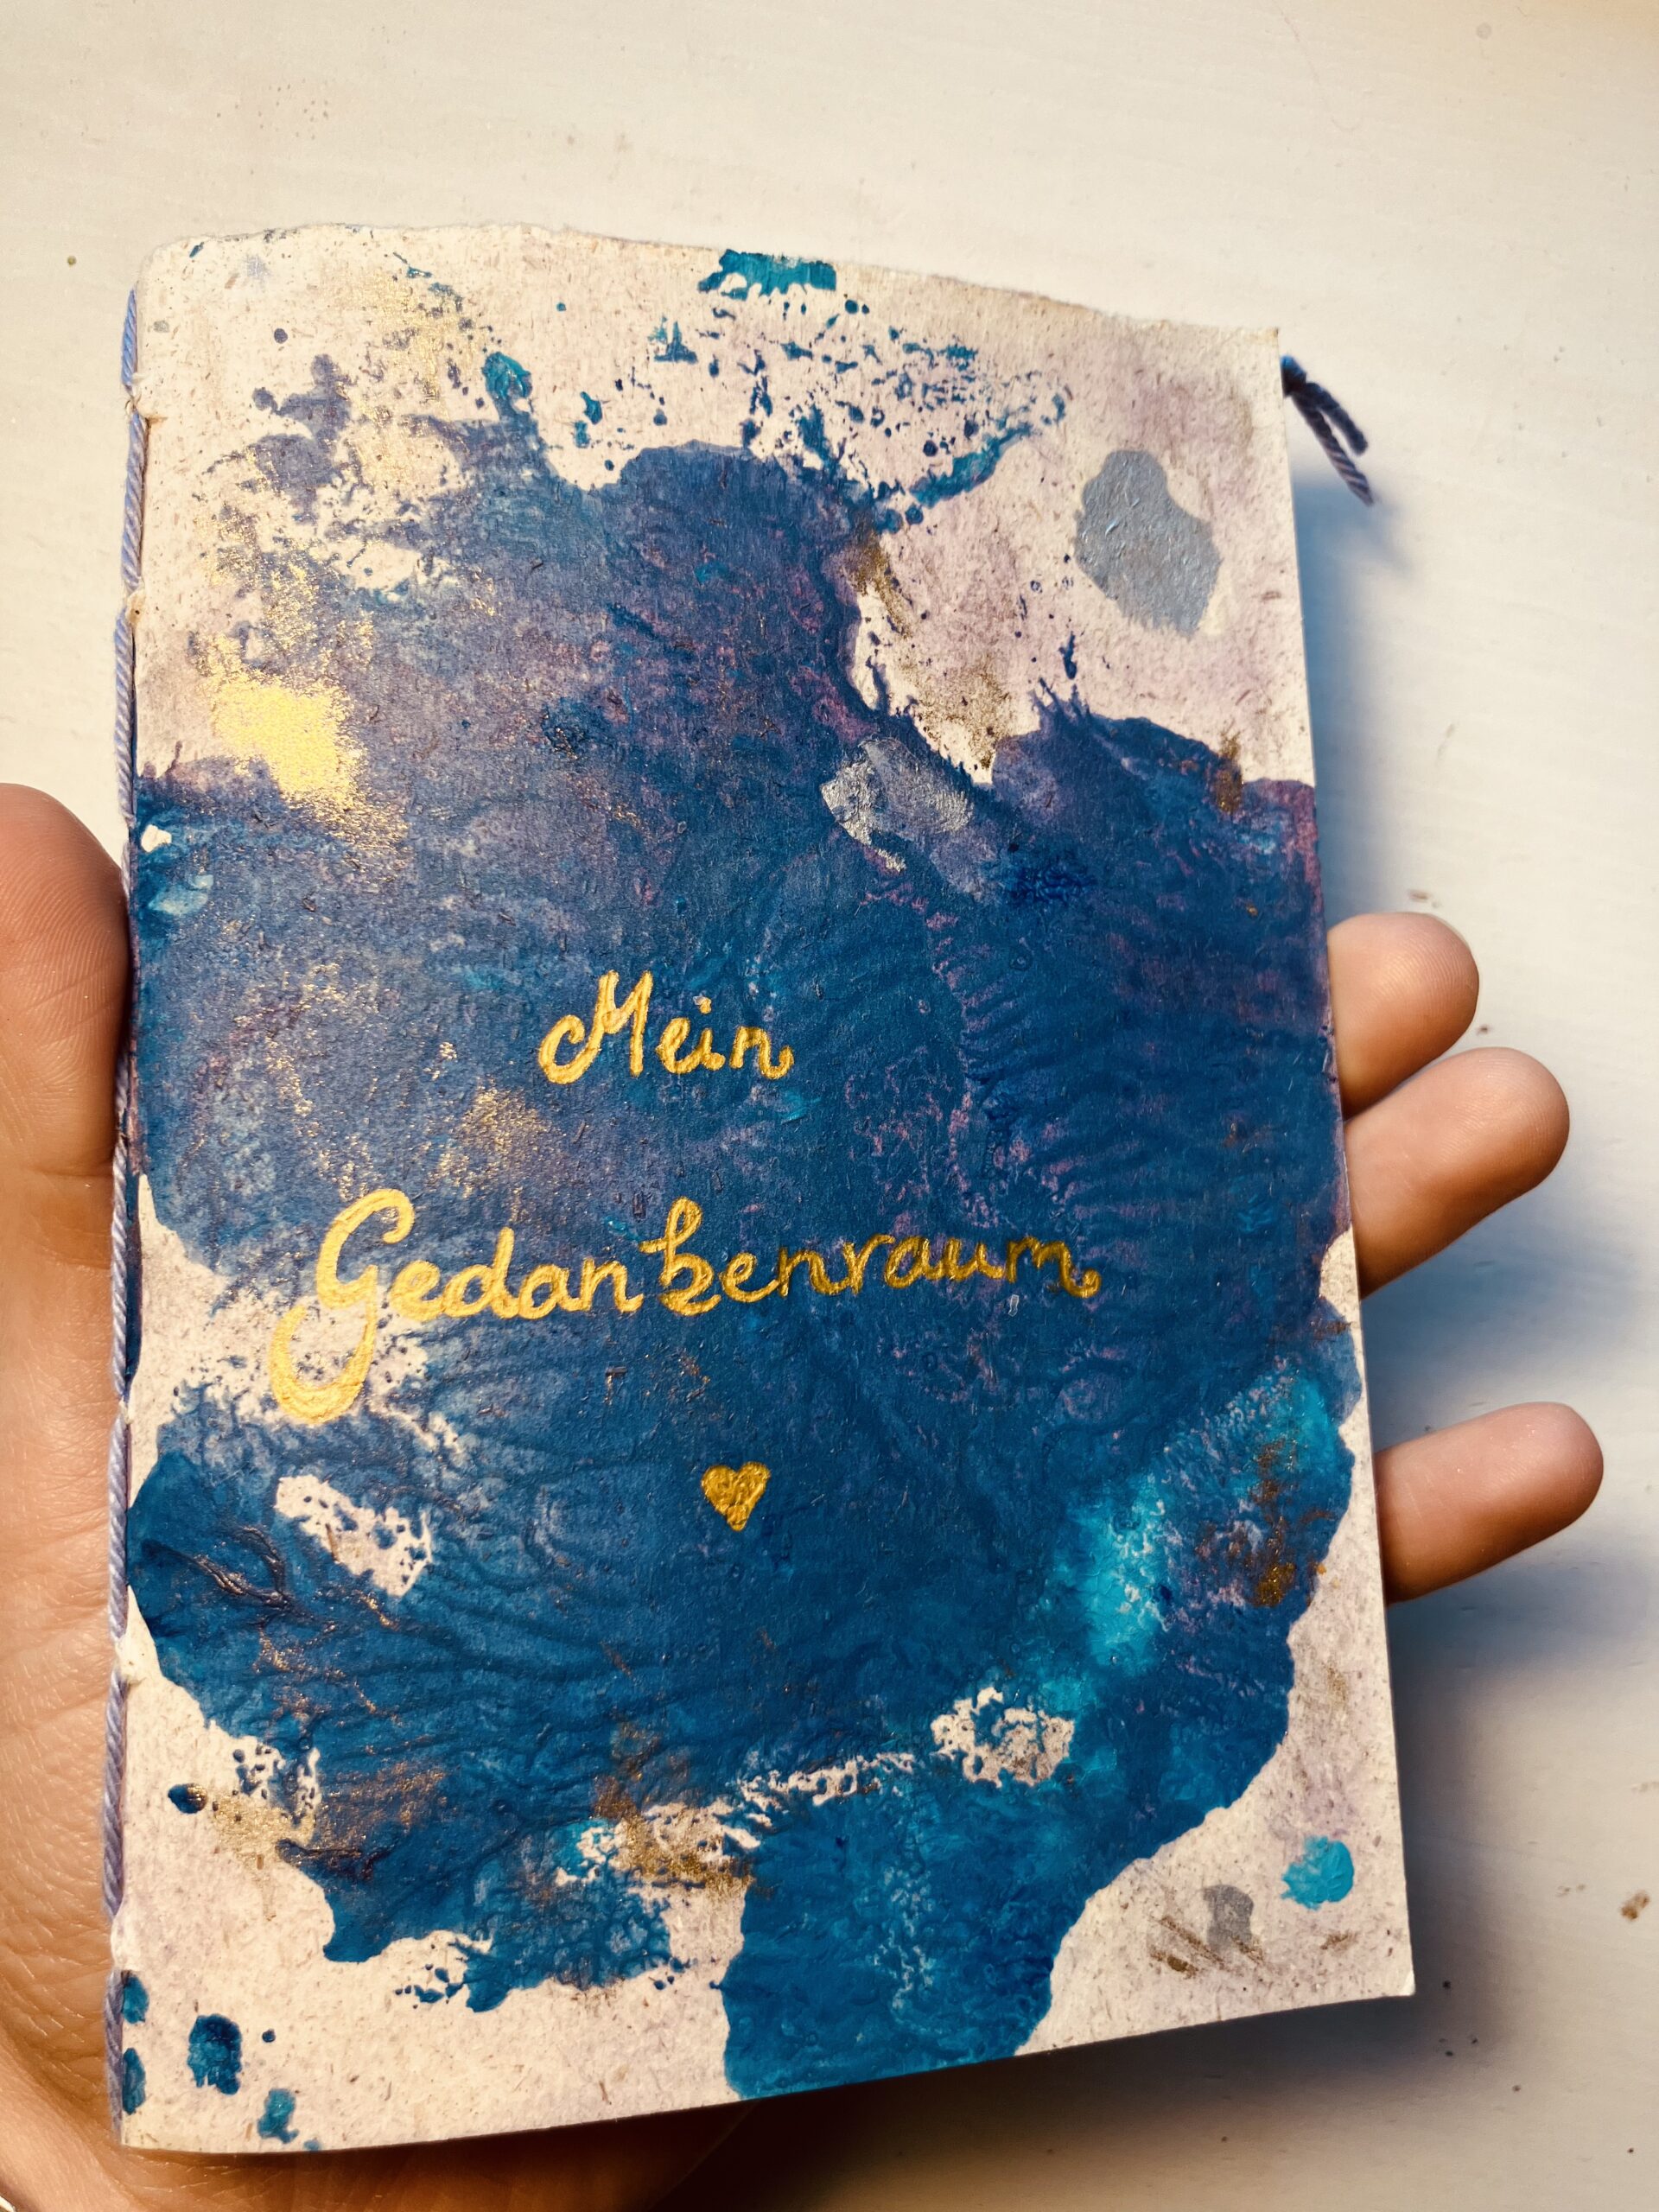 Mein
Gedankenraum